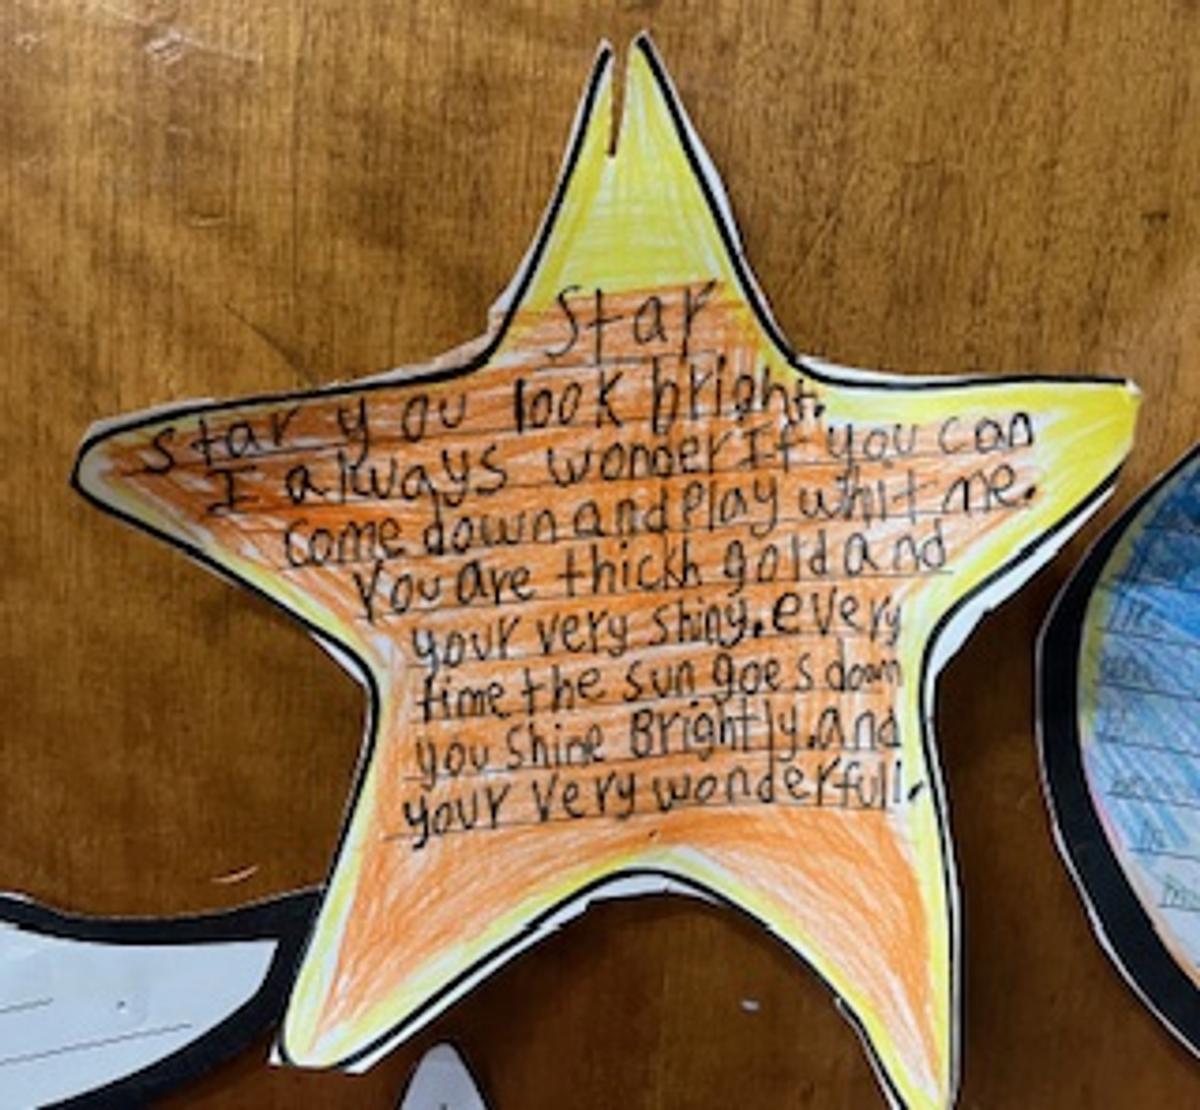 Star
Star you look bright.
I always wonder If you can
come down and Play whit me.
You are thickh gold and
your very shiny. every
time the sun goes down
you shine Brightly. and
your very wonderfull.